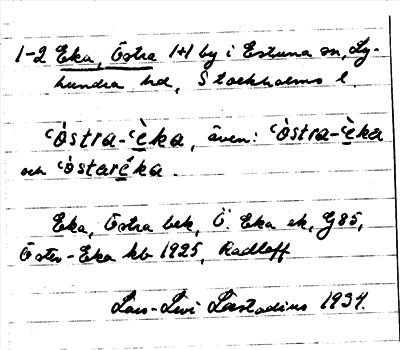 1-2 Eka, Östra 1+1 by i Estuna sn, Ly-
hundra hd, Stockholms l.
`östra-`èka, även: `östra-`èka
och `östaréka.
Eka, Östra bek, Ö. Eka ek, G85,
Öster-Eka kb 1925, Radloff
Lars-Levi Læstadius 1934.